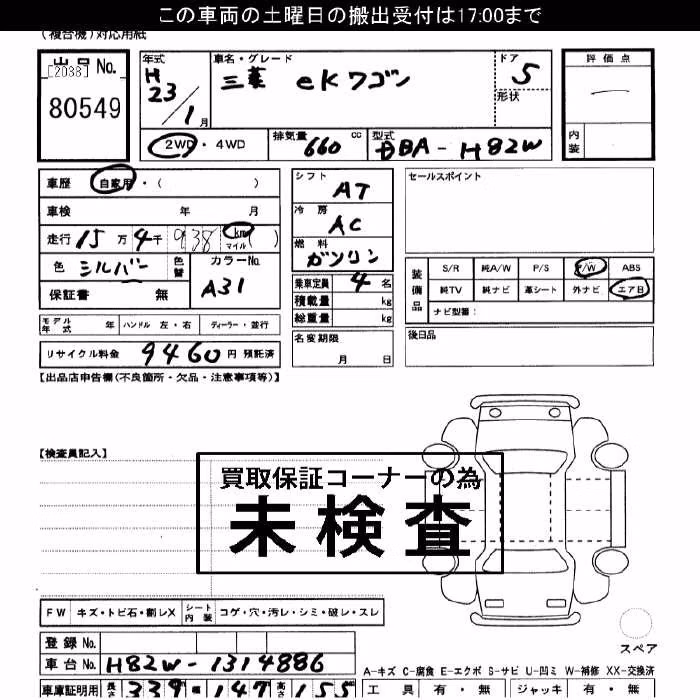 この車両の土曜日の搬出受付は17:00まで
(複合機)対応用紙
出品No.
[2038]
80549
年式 H23/1月
車名・グレード 三菱 eKワゴン
ドア 5
形状
評価点
内装
2WD・4WD
排気量 660 cc
型式 BBA-H82W
車歴 自家用・( )
車検 年 月
走行 15万4千938 km マイル ( )
色 シルバー 色替 カラーNo. A31
保証書 無
シフト AT
冷房 AC
燃料 ガソリン
乗車定員 4名
積載量 kg
総重量 kg
セールスポイント
装備品 S/R 純A/W P/S P/W ABS
純TV 純ナビ 革シート 外ナビ エアB
ナビ型番:
モデル年式 年 ハンドル 左・右 ディーラー・並行
名変期限 月 日
後日品
リサイクル料金 9460円 預託済
【出品店申告欄(不良箇所・欠品・注意事項等)】
【検査員記入】
買取保証コーナーの為
未検査
FW キズ・トビ石・割レX シート内装 コゲ・穴・汚レ・シミ・破レ・スレ
スペア
登録No.
車台No. H82W-1314886
A-キズ C-腐食 E-エクボ S-サビ U-凹ミ W-補修 XX-交換済
車庫証明用 長さ 339 147 高さ 155
工具 有・無 ジャッキ 有・無